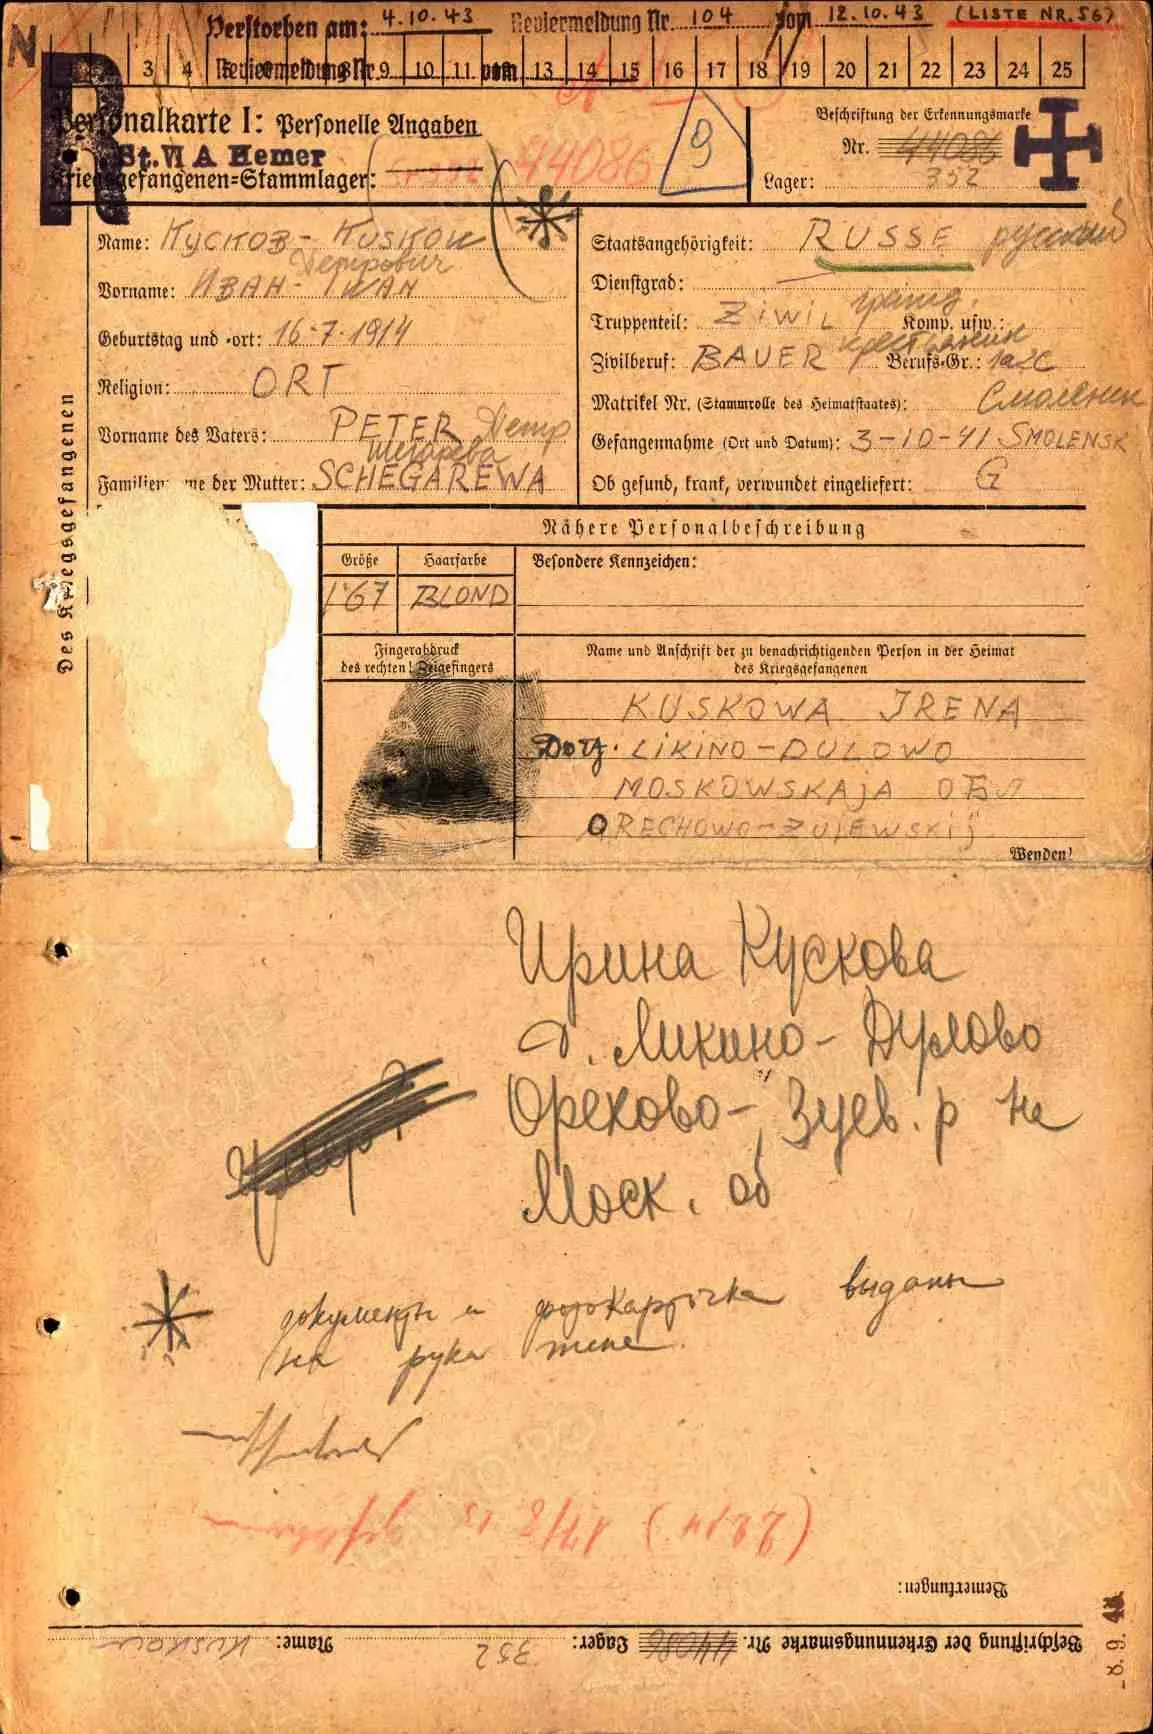 Verstorben am: 4.10.43 Reviermeldung Nr. 104 vom 12.10.43 (LISTE NR. 56)
N
3 4 5 6 8 9 10 11 13 14 15 16 17 18 19 20 21 22 23 24 25
Reviermeldung Nr. vom
R
Personalkarte I: Personelle Angaben
St. VI A Hemer
Kriegsgefangenen=Stammlager: 44086
9
Beschriftung der Erkennungsmarke
Nr. 44086
Lager: 352
Des Kriegsgefangenen
Name: Кусков - KUSKOW
Петрович
Vorname: Иван - IWAN
Geburtstag und -ort: 16-7-1914
Religion: ORT
Vorname des Vaters: PETER Петр
Щегарева
Familienname der Mutter: SCHEGAREWA
Staatsangehörigkeit: RUSSE русский
Dienstgrad:
гражд.
Truppenteil: ZIWIL Komp. usw.:
крестьянин
Zivilberuf: BAUER Berufs-Gr.: 1a2c
Matrikel Nr. (Stammrolle des Heimatstaates):
Gefangennahme (Ort und Datum): 3-10-41 SMOLENSK
Ob gesund, krank, verwundet eingeliefert: G
Nähere Personalbeschreibung
Größe Haarfarbe Besondere Kennzeichen:
1'67 BLOND
Fingerabdruck
des rechten! Zeigefingers
Name und Anschrift der zu benachrichtigenden Person in der Heimat
des Kriegsgefangenen
KUSKOWA IRENA
Dorf. LIKINO-DULOWO
MOSKOWSKAJA ОБЛ
ORECHOWO-ZUJEWSKIJ
Wenden!
Ирина Кускова
д. Ликино-Дулово
Орехово-Зуев. р не
Моск. об
документы и фотокарточка выданы
на рука жене.
Bemerkungen:
Beschriftung der Erkennungsmarke Nr. 44086 Lager: 352 Name: KUSKOW
-8.9.